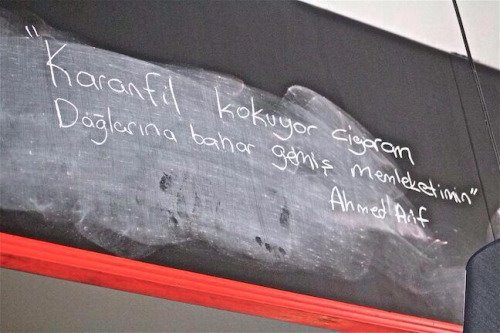 "Karanfil kokuyor cigaram
Dağlarına bahar gelmiş memleketimin"
Ahmed Arif